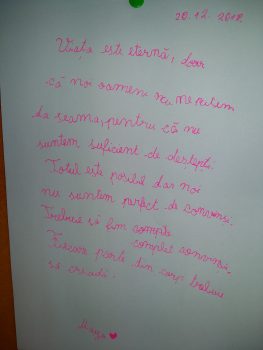 20.12.2018.
Viața este eternă, doar
că noi oamenii nu ne putem
da seama, pentru că nu
suntem suficent de deștepți.
Totul este posibil dar noi
nu suntem perfect de convinși.
Trebuie să fim complet
complet convinși,
Fiecare parte din corp trebuie
să creadă.
Maya